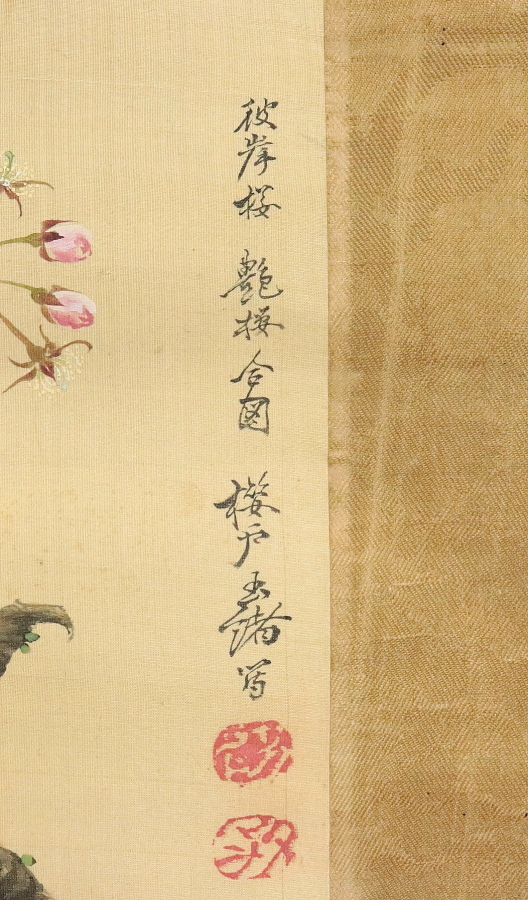 彼岸桜 艶桜 合図 櫻戸玉緒写